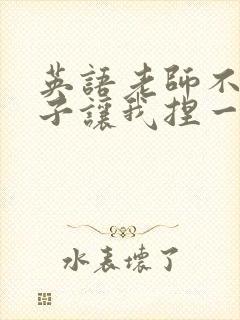 英語老師不
子讓我捏一
水表壞了